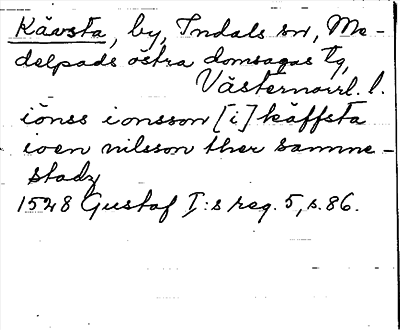 Kävsta, by, Indals sn, Me-
delpads östra domsagas tg,
Västernorrl. l.
iönss ionsson [i] käffsta
ioen nilsson ther samme-
stadz
1548 Gustaf I:s reg. 5, s. 86.